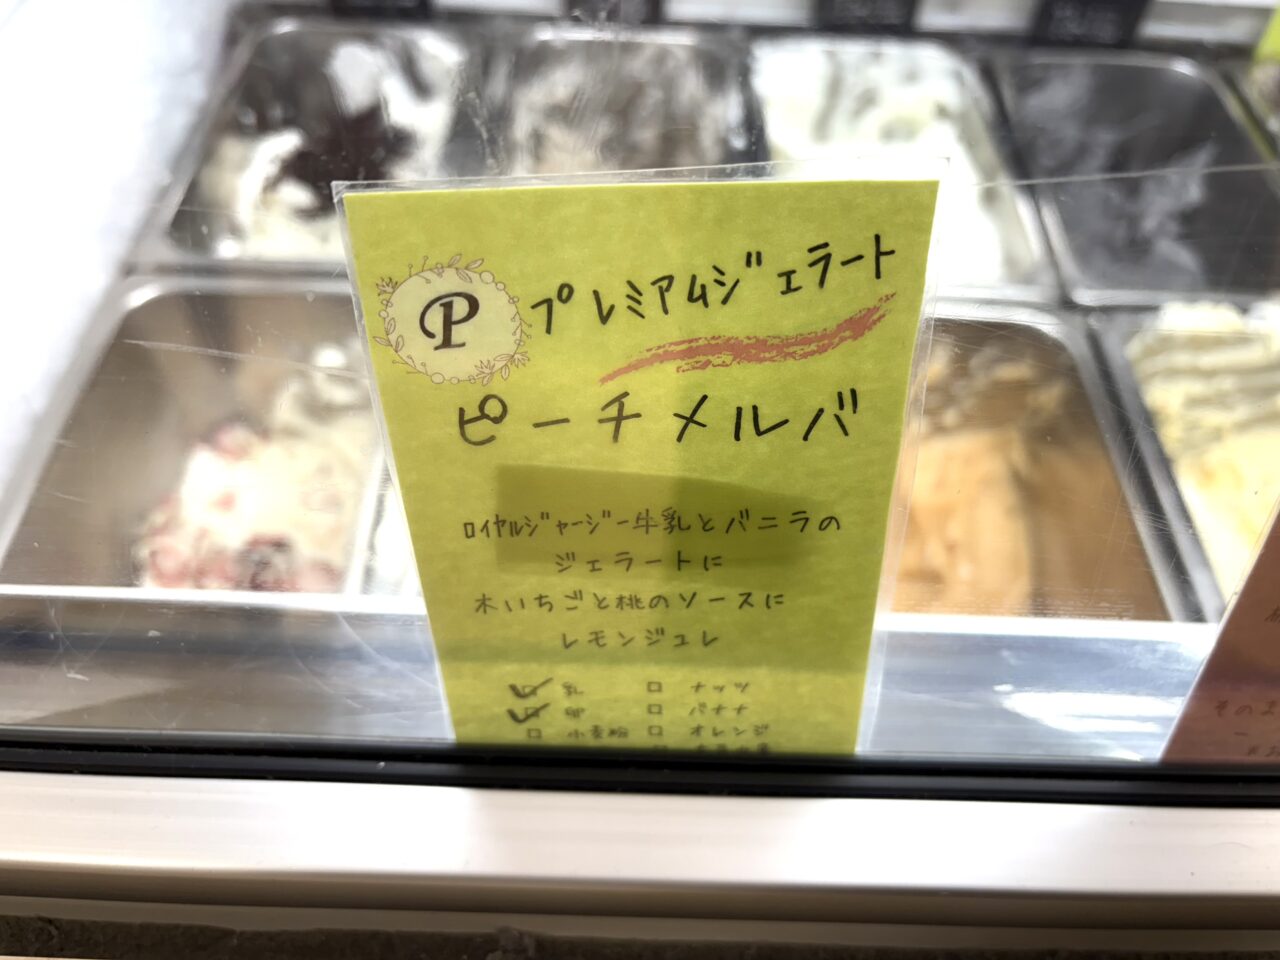 P
プレミアムジェラート
ピーチメルバ
ロイヤルジャージー牛乳とバニラの
ジェラートに
木いちごと桃のソースに
レモンジュレ
乳 □ ナッツ
卵 □ バナナ
□ 小麦粉 □ オレンジ
そのま